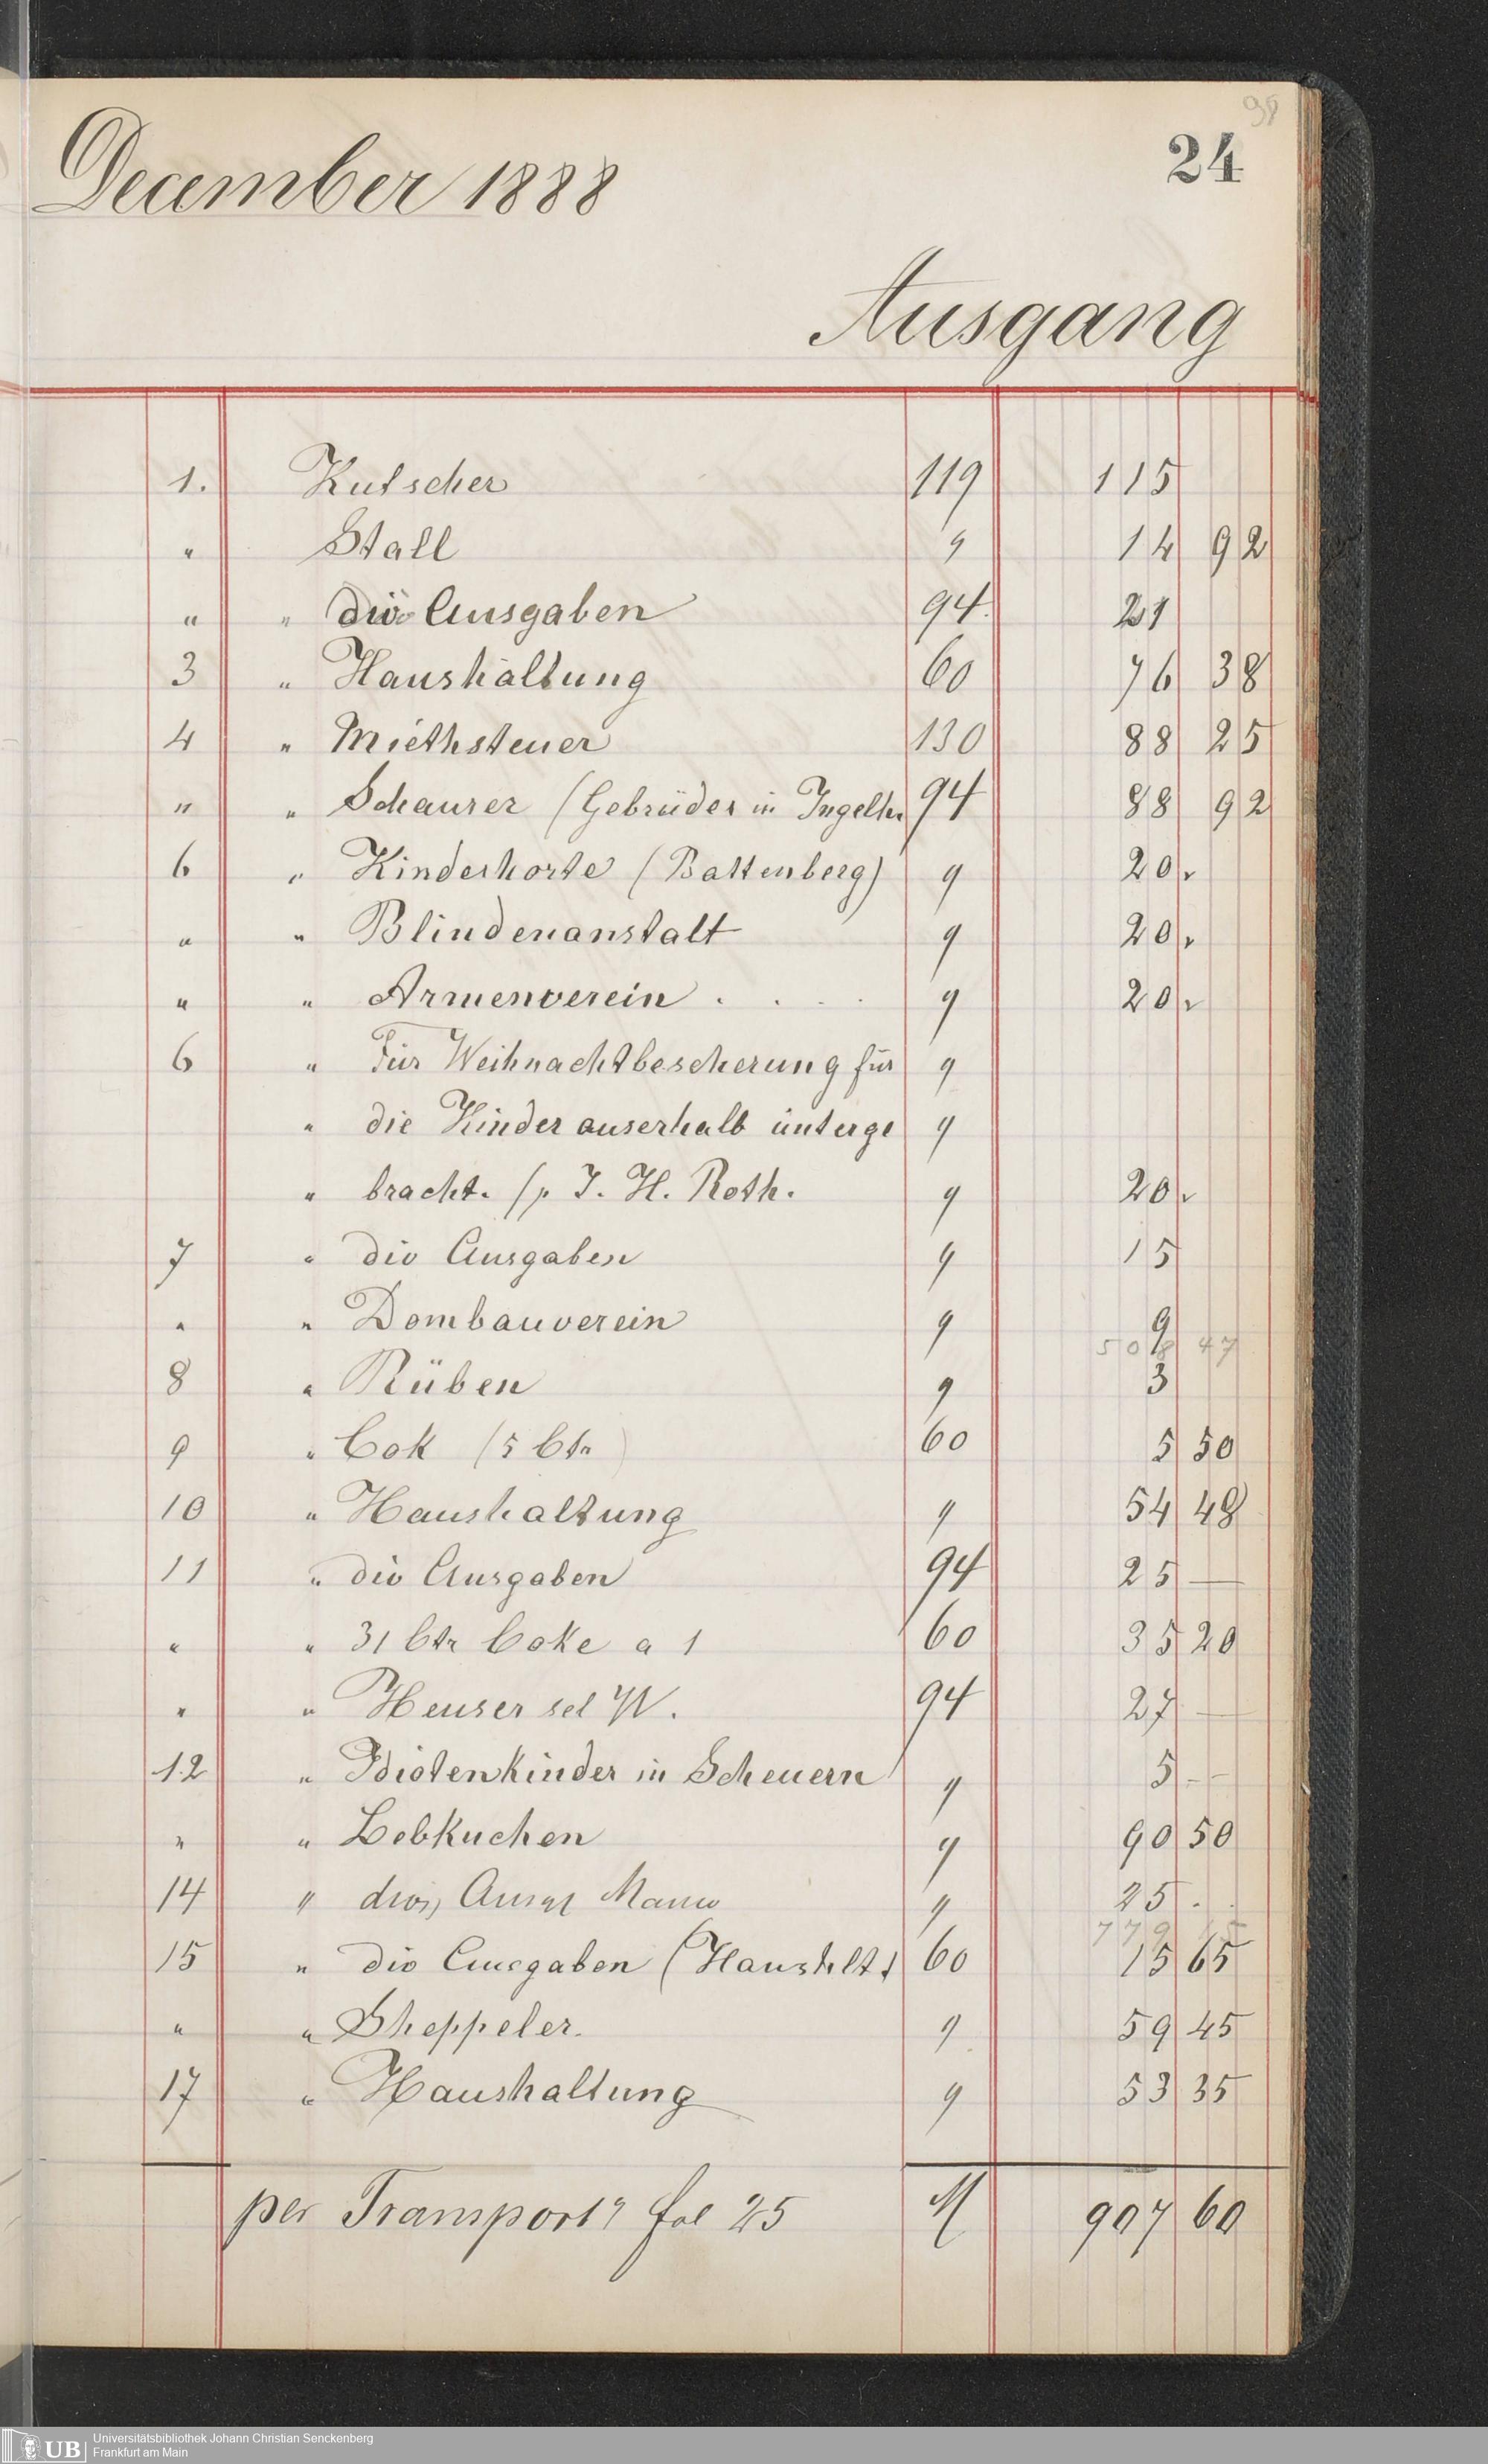 98
24
December 1888
Ausgang
1. Kutscher 119 115
" Stall " 14 92
" " div Ausgaben 94 21
3 " Haushaltung 60 76 38
4 " Miethsteuer 130 88 25
" " Schaurer (Gebrüder in Ingelh. 94 88 92
6 " Kinderhorte (Battenberg) " 20 "
" " Blindenanstalt " 20 "
" " Armenverein . . . . " 20 "
6 " Für Weihnachtbescherung für "
" die Kinder auserhalb unterge "
" bracht. /p. J. H. Roth. " 20 "
7 " div Ausgaben " 15
" " Dombauverein " 9
508 47
8 " Rüben " 3
9 " Cok (5 Ctr) 60 5 50
10 " Haushaltung " 54 48
11 " div Ausgaben 94 25 —
" " 31 Ctr Coke a 1 60 35 20
" " Heuser sel W. 94 27 —
12 " Idiotenkinder in Scheuern " 5 --
" " Lebkuchen " 90 50
14 " " 25 .
779 15
15 " div Ausgaben (Haushltt 60 15 65
" " Sheppeler. " 59 45
17 " Haushaltung " 53 35
per Transport fol 25 M 907 60
UB Universitätsbibliothek Johann Christian Senckenberg
Frankfurt am Main